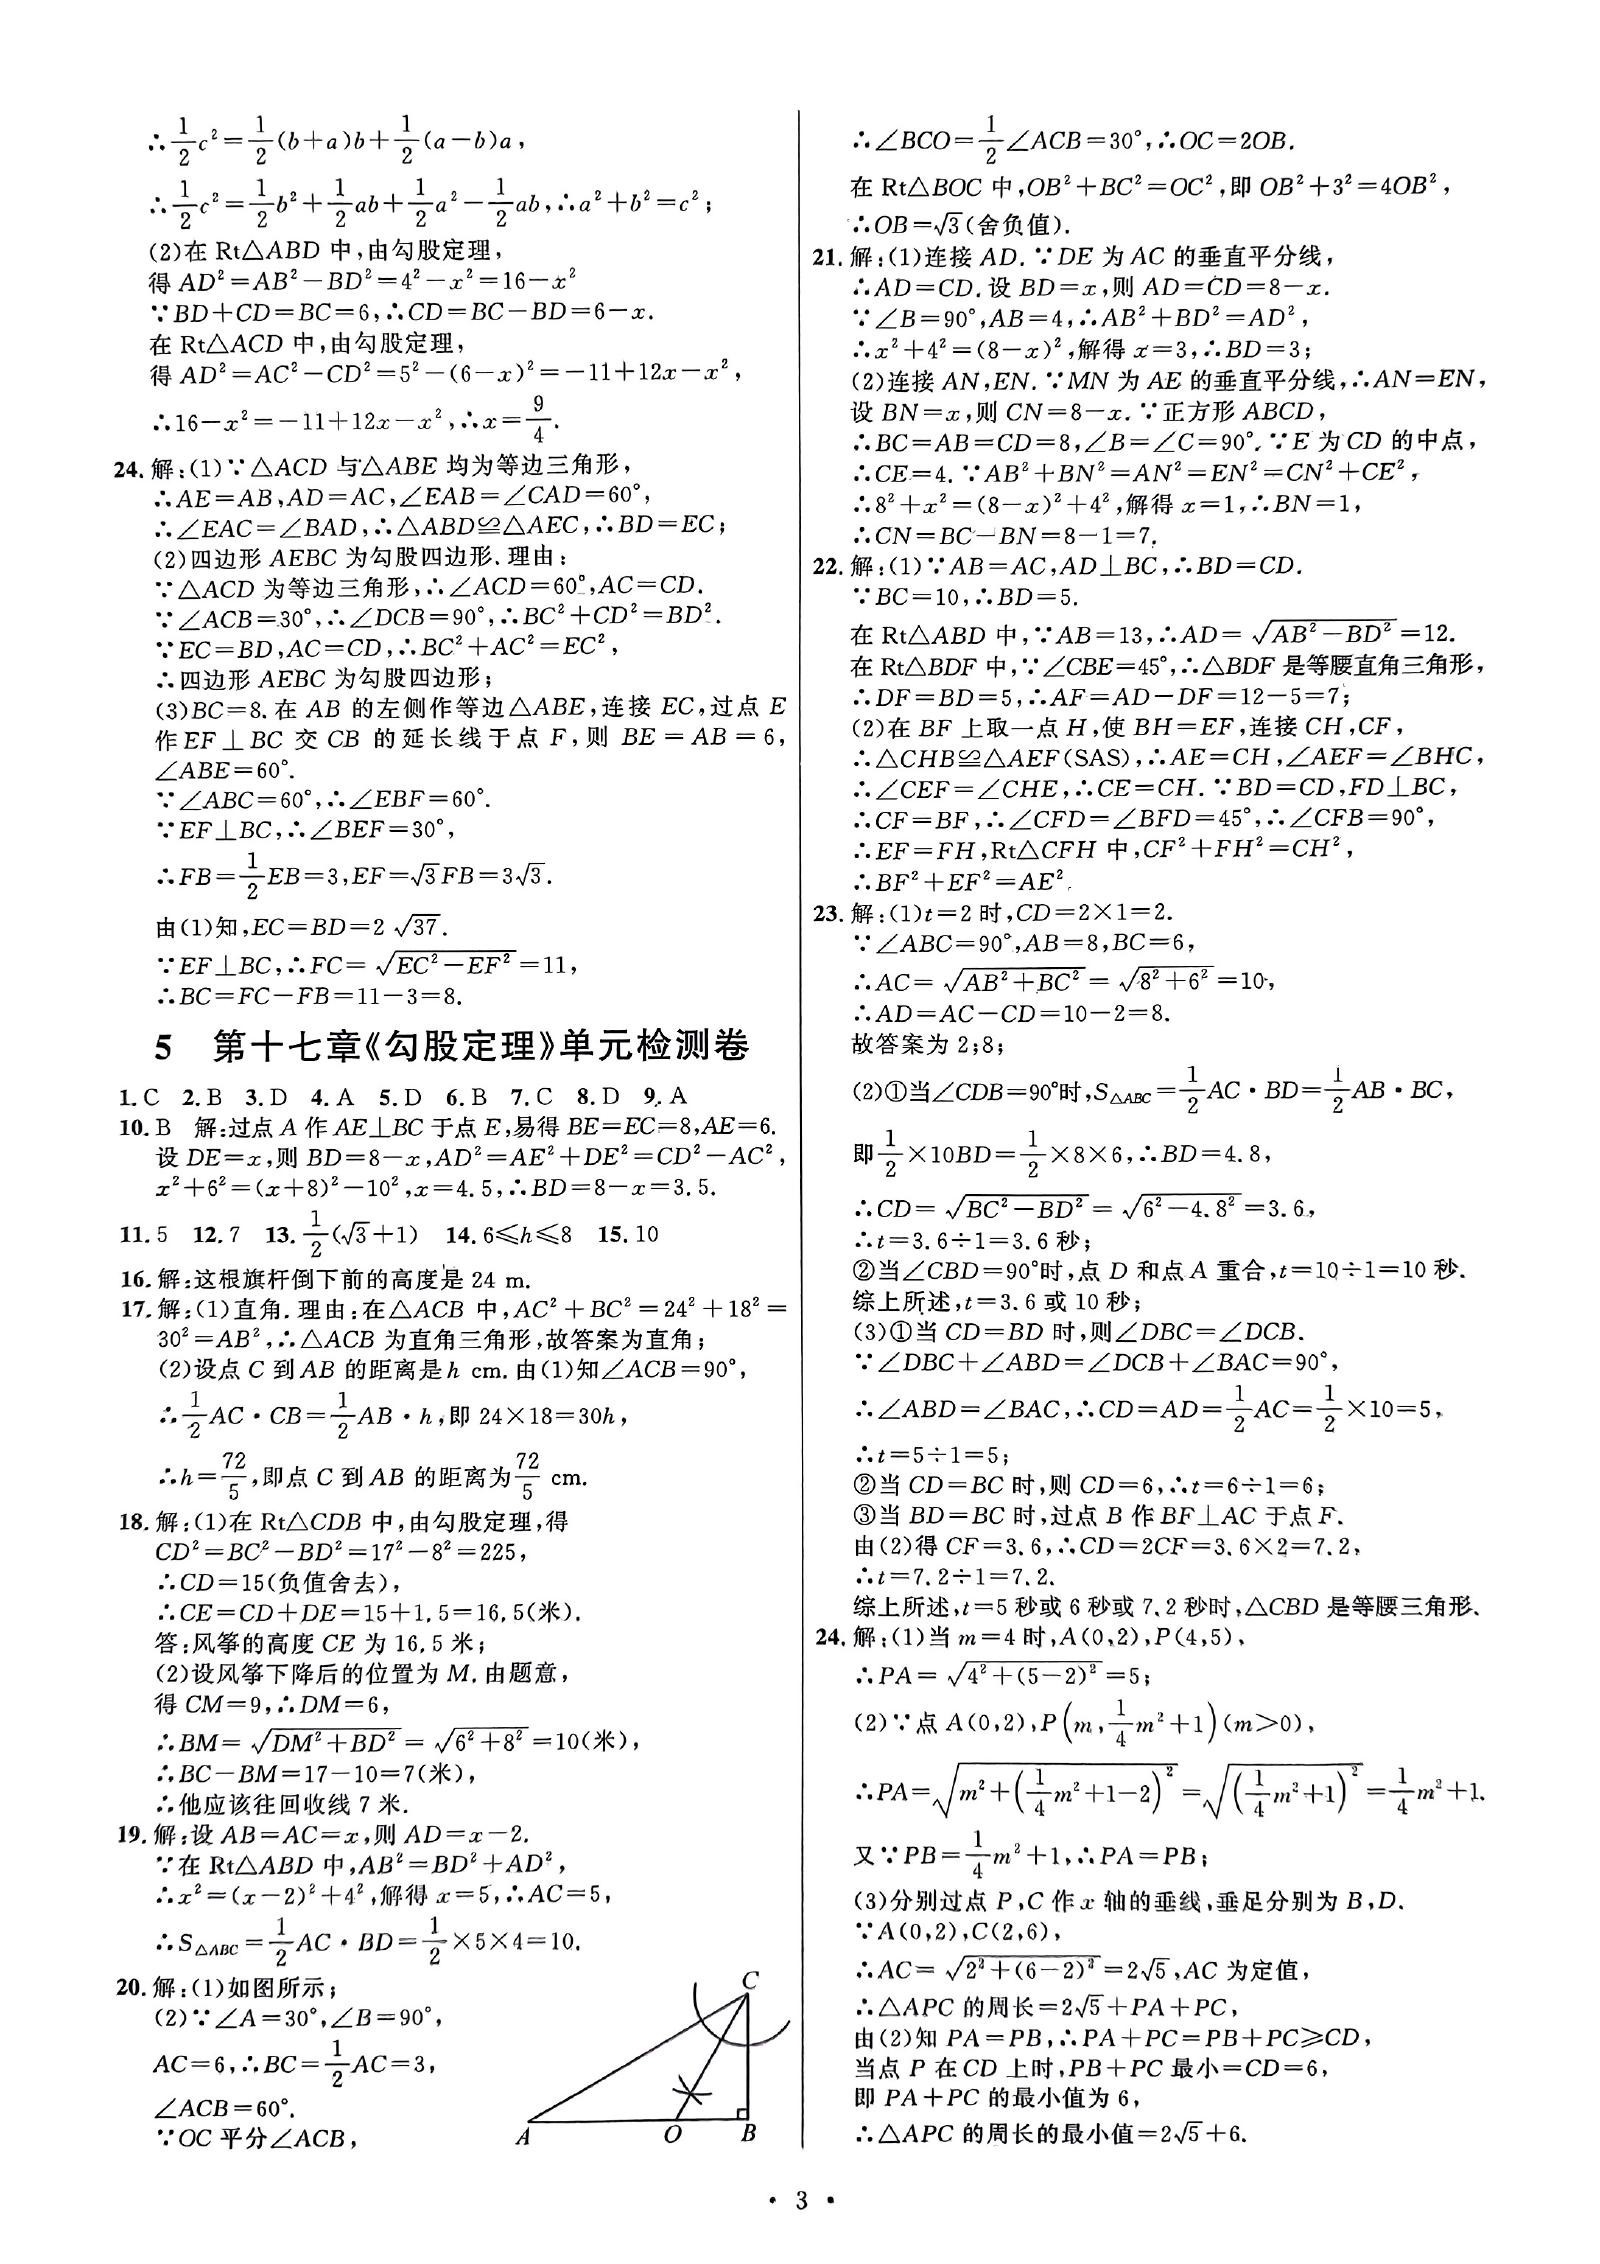 ∴1/2c²=1/2(b+a)b+1/2(a-b)a,
∴1/2c²=1/2b²+1/2ab+1/2a²-1/2ab,∴a²+b²=c²;
(2)在 Rt△ABD 中,由勾股定理,
得 AD²=AB²-BD²=4²-x²=16-x²
∵BD+CD=BC=6,∴CD=BC-BD=6-x.
在 Rt△ACD 中,由勾股定理,
得 AD²=AC²-CD²=5²-(6-x)²=-11+12x-x²,
∴16-x²=-11+12x-x²,∴x=9/4.
24.解:(1)∵△ACD 与△ABE 均为等边三角形,
∴AE=AB,AD=AC,∠EAB=∠CAD=60°,
∴∠EAC=∠BAD,∴△ABD≌△AEC,∴BD=EC;
(2)四边形 AEBC 为勾股四边形.理由:
∵△ACD 为等边三角形,∴∠ACD=60°,AC=CD.
∵∠ACB=30°,∴∠DCB=90°,∴BC²+CD²=BD².
∵EC=BD,AC=CD,∴BC²+AC²=EC²,
∴四边形 AEBC 为勾股四边形;
(3)BC=8.在 AB 的左侧作等边△ABE,连接 EC,过点 E
作 EF⊥BC 交 CB 的延长线于点 F,则 BE=AB=6,
∠ABE=60°.
∵∠ABC=60°,∴∠EBF=60°.
∵EF⊥BC,∴∠BEF=30°,
∴FB=1/2EB=3,EF=√3FB=3√3.
由(1)知,EC=BD=2√37.
∵EF⊥BC,∴FC=√(EC²-EF²)=11,
∴BC=FC-FB=11-3=8.
5 第十七章《勾股定理》单元检测卷
1.C 2.B 3.D 4.A 5.D 6.B 7.C 8.D 9.A
10.B 解:过点 A 作 AE⊥BC 于点 E,易得 BE=EC=8,AE=6.
设 DE=x,则 BD=8-x,AD²=AE²+DE²=CD²-AC²,
x²+6²=(x+8)²-10²,x=4.5,∴BD=8-x=3.5.
11.5 12.7 13.1/2(√3+1) 14.6≤h≤8 15.10
16.解:这根旗杆倒下前的高度是 24 m.
17.解:(1)直角.理由:在△ACB 中,AC²+BC²=24²+18²=
30²=AB²,∴△ACB 为直角三角形,故答案为直角;
(2)设点 C 到 AB 的距离是 h cm.由(1)知∠ACB=90°,
∴1/2AC·CB=1/2AB·h,即 24×18=30h,
∴h=72/5,即点 C 到 AB 的距离为72/5 cm.
18.解:(1)在 Rt△CDB 中,由勾股定理,得
CD²=BC²-BD²=17²-8²=225,
∴CD=15(负值舍去),
∴CE=CD+DE=15+1.5=16.5(米).
答:风筝的高度 CE 为 16.5 米;
(2)设风筝下降后的位置为 M.由题意,
得 CM=9,∴DM=6,
∴BM=√(DM²+BD²)=√(6²+8²)=10(米),
∴BC-BM=17-10=7(米),
∴他应该往回收线 7 米.
19.解:设 AB=AC=x,则 AD=x-2.
∵在 Rt△ABD 中,AB²=BD²+AD²,
∴x²=(x-2)²+4²,解得 x=5,∴AC=5,
∴S△ABC=1/2AC·BD=1/2×5×4=10.
20.解:(1)如图所示;
(2)∵∠A=30°,∠B=90°,
AC=6,∴BC=1/2AC=3,
∠ACB=60°.
∵OC 平分∠ACB,
C
A
O
B
∴∠BCO=1/2∠ACB=30°,∴OC=2OB.
在 Rt△BOC 中,OB²+BC²=OC²,即 OB²+3²=4OB²,
∴OB=√3(舍负值).
21.解:(1)连接 AD.∵DE 为 AC 的垂直平分线,
∴AD=CD.设 BD=x,则 AD=CD=8-x.
∵∠B=90°,AB=4,∴AB²+BD²=AD²,
∴x²+4²=(8-x)²,解得 x=3,∴BD=3;
(2)连接 AN,EN.∵MN 为 AE 的垂直平分线,∴AN=EN,
设 BN=x,则 CN=8-x.∵正方形 ABCD,
∴BC=AB=CD=8,∠B=∠C=90°.∵E 为 CD 的中点,
∴CE=4.∵AB²+BN²=AN²=EN²=CN²+CE²,
∴8²+x²=(8-x)²+4²,解得 x=1,∴BN=1,
∴CN=BC-BN=8-1=7.
22.解:(1)∵AB=AC,AD⊥BC,∴BD=CD.
∵BC=10,∴BD=5.
在 Rt△ABD 中,∵AB=13,∴AD=√(AB²-BD²)=12.
在 Rt△BDF 中,∵∠CBE=45°,∴△BDF 是等腰直角三角形,
∴DF=BD=5,∴AF=AD-DF=12-5=7;
(2)在 BF 上取一点 H,使 BH=EF,连接 CH,CF,
∴△CHB≌△AEF(SAS),∴AE=CH,∠AEF=∠BHC,
∴∠CEF=∠CHE,∴CE=CH.∵BD=CD,FD⊥BC,
∴CF=BF,∴∠CFD=∠BFD=45°,∴∠CFB=90°,
∴EF=FH,Rt△CFH 中,CF²+FH²=CH²,
∴BF²+EF²=AE².
23.解:(1)t=2 时,CD=2×1=2.
∵∠ABC=90°,AB=8,BC=6,
∴AC=√(AB²+BC²)=√(8²+6²)=10,
∴AD=AC-CD=10-2=8.
故答案为 2;8;
(2)①当∠CDB=90°时,S△ABC=1/2AC·BD=1/2AB·BC,
即1/2×10BD=1/2×8×6,∴BD=4.8,
∴CD=√(BC²-BD²)=√(6²-4.8²)=3.6,
∴t=3.6÷1=3.6 秒;
②当∠CBD=90°时,点 D 和点 A 重合,t=10÷1=10 秒.
综上所述,t=3.6 或 10 秒;
(3)①当 CD=BD 时,则∠DBC=∠DCB.
∵∠DBC+∠ABD=∠DCB+∠BAC=90°,
∴∠ABD=∠BAC,∴CD=AD=1/2AC=1/2×10=5,
∴t=5÷1=5;
②当 CD=BC 时,则 CD=6,∴t=6÷1=6;
③当 BD=BC 时,过点 B 作 BF⊥AC 于点 F.
由(2)得 CF=3.6,∴CD=2CF=3.6×2=7.2,
∴t=7.2÷1=7.2.
综上所述,t=5 秒或 6 秒或 7.2 秒时,△CBD 是等腰三角形.
24.解:(1)当 m=4 时,A(0,2),P(4,5),
∴PA=√(4²+(5-2)²)=5;
(2)∵点 A(0,2),P(m,1/4m²+1)(m>0),
∴PA=√(m²+(1/4m²+1-2)²)=√((1/4m²+1)²)=1/4m²+1.
又∵PB=1/4m²+1,∴PA=PB;
(3)分别过点 P,C 作 x 轴的垂线,垂足分别为 B,D.
∵A(0,2),C(2,6),
∴AC=√(2²+(6-2)²)=2√5,AC 为定值,
∴△APC 的周长=2√5+PA+PC,
由(2)知 PA=PB,∴PA+PC=PB+PC≥CD,
当点 P 在 CD 上时,PB+PC 最小=CD=6,
即 PA+PC 的最小值为 6,
∴△APC 的周长的最小值=2√5+6.
· 3 ·